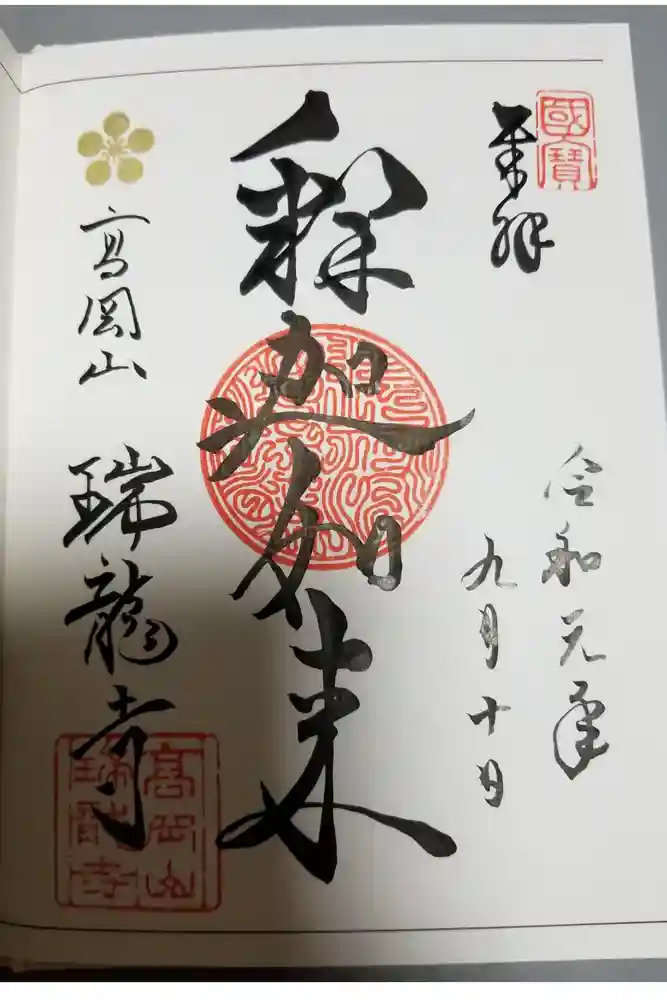 國寶
奉拝
令和元年
九月十日
釈迦如来
高岡山 瑞龍寺
高岡山
瑞龍寺